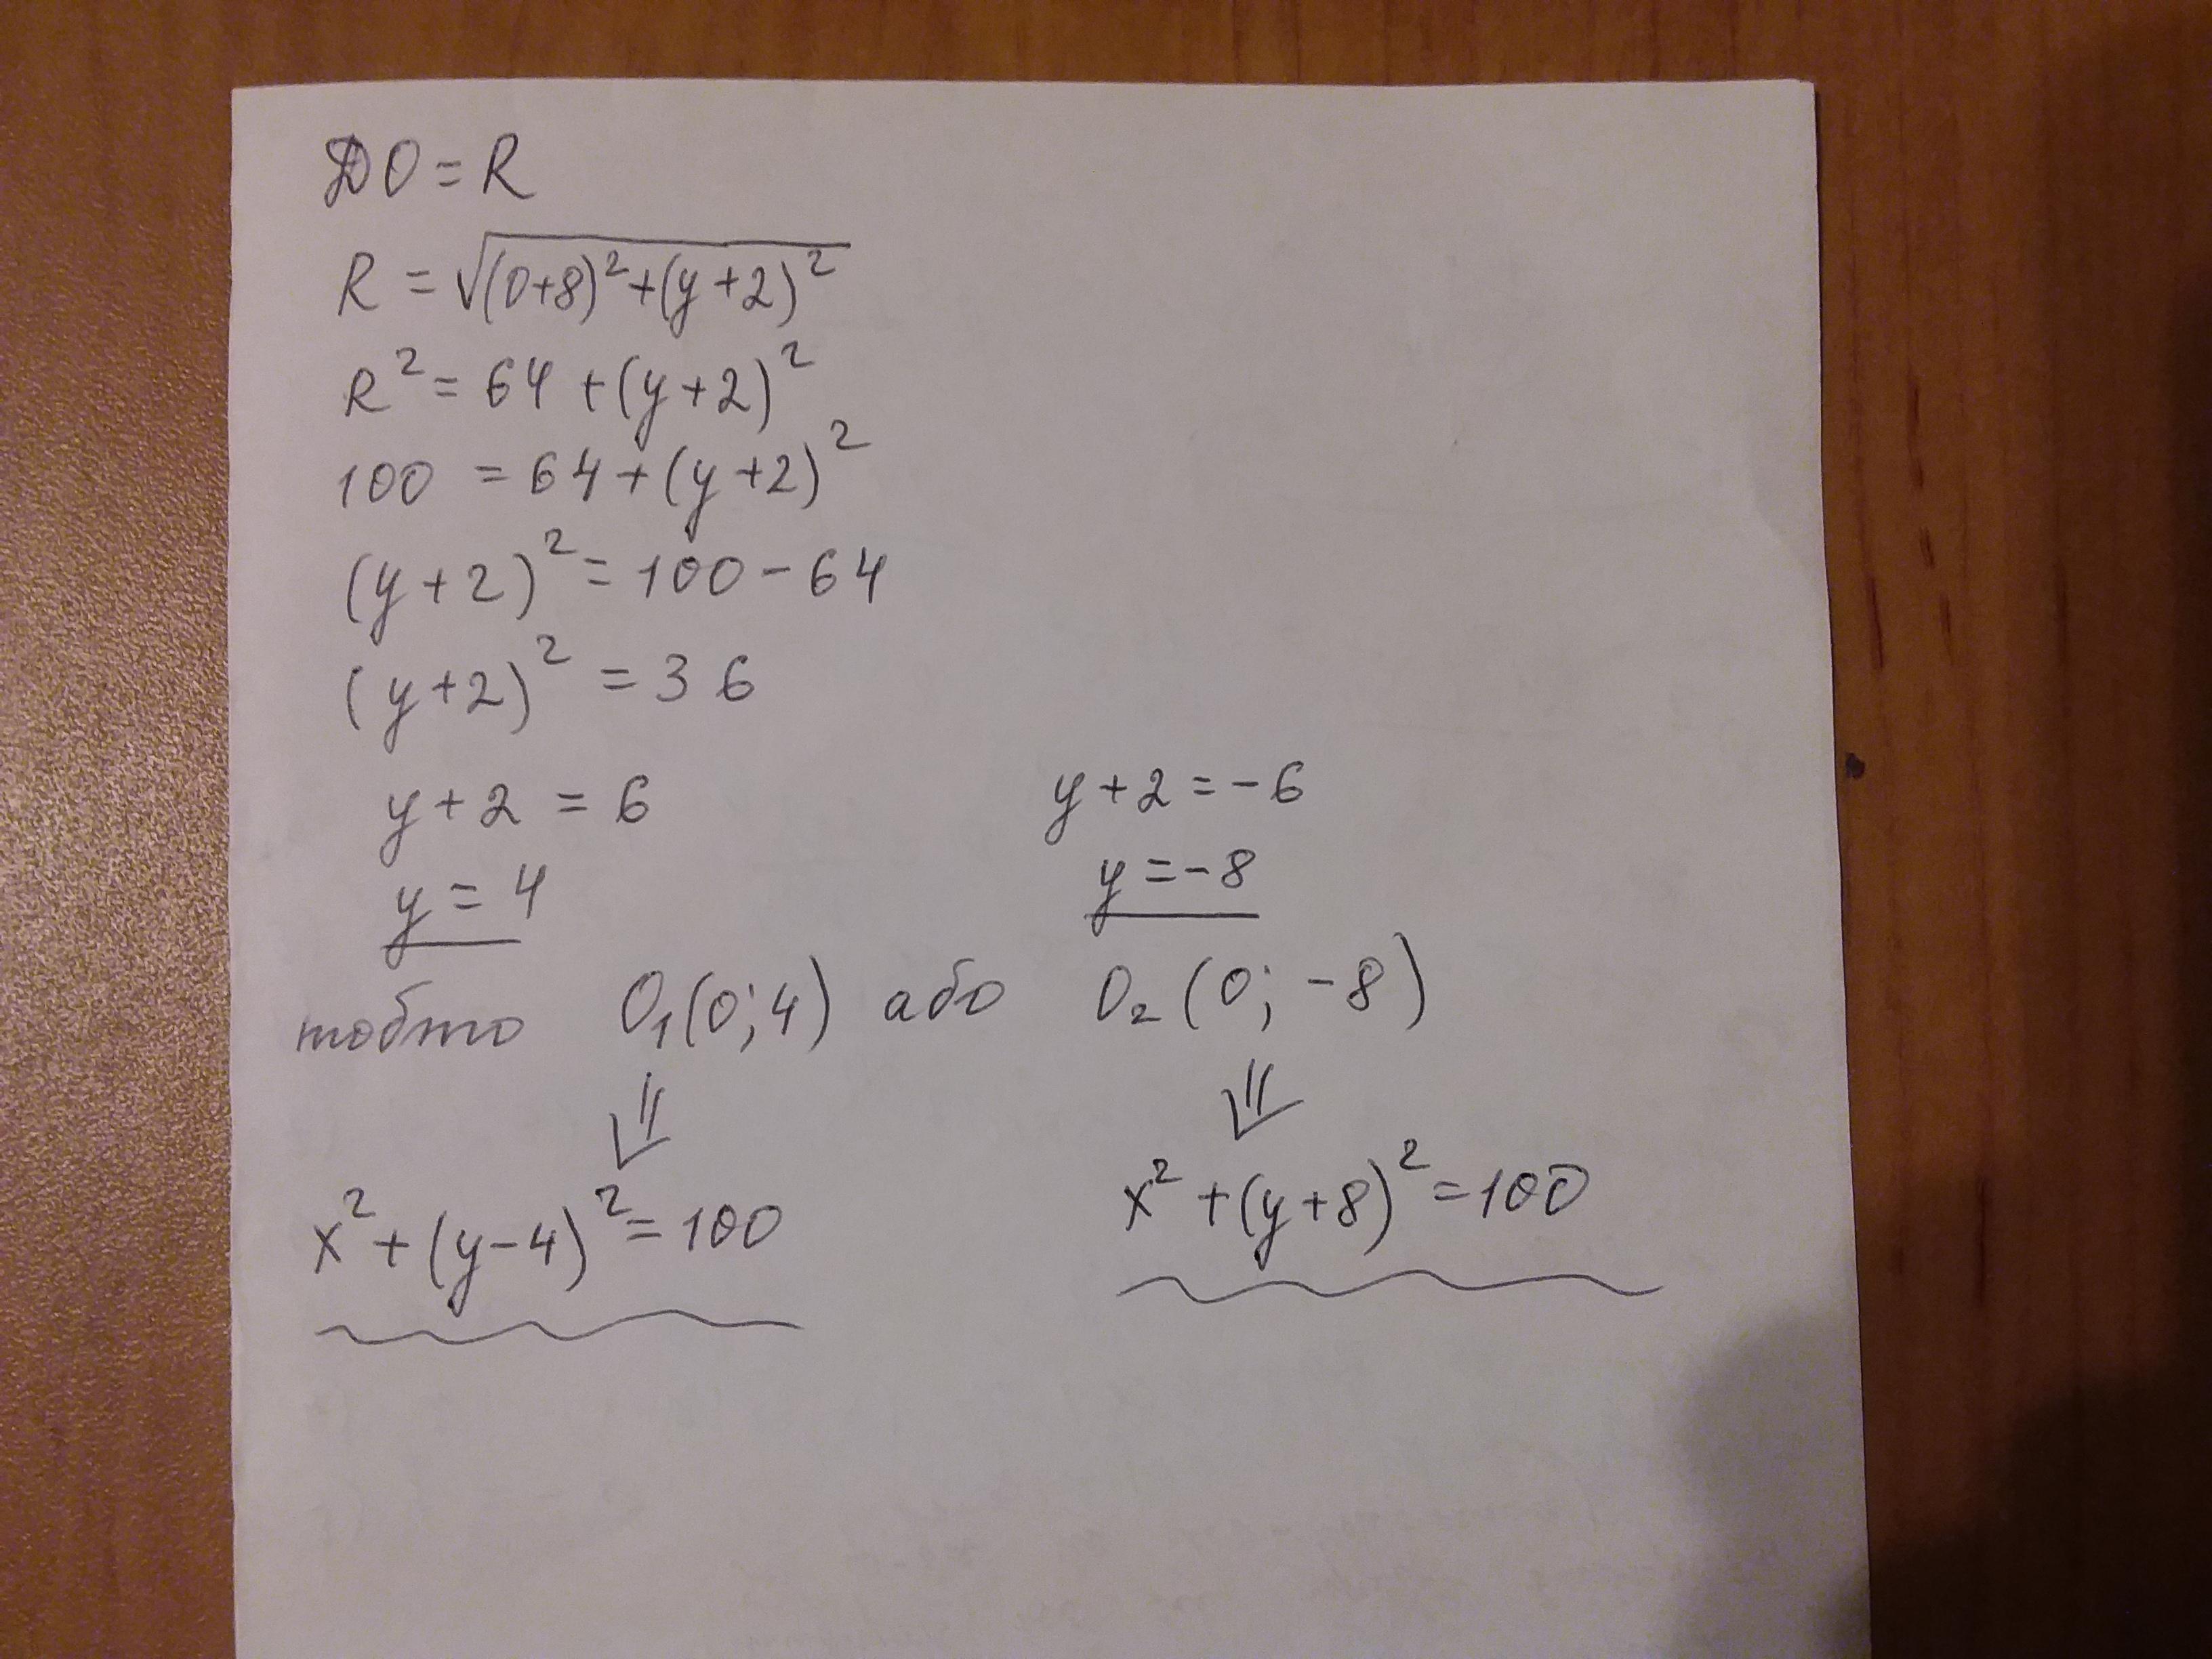 DO = R
R = √((0+8)² + (y+2)²)
R² = 64 + (y+2)²
100 = 64 + (y+2)²
(y+2)² = 100 - 64
(y+2)² = 36
y+2 = 6 y+2 = -6
y = 4 y = -8
тобто O₁(0; 4) або O₂(0; -8)
⇓ ⇓
x² + (y-4)² = 100 x² + (y+8)² = 100